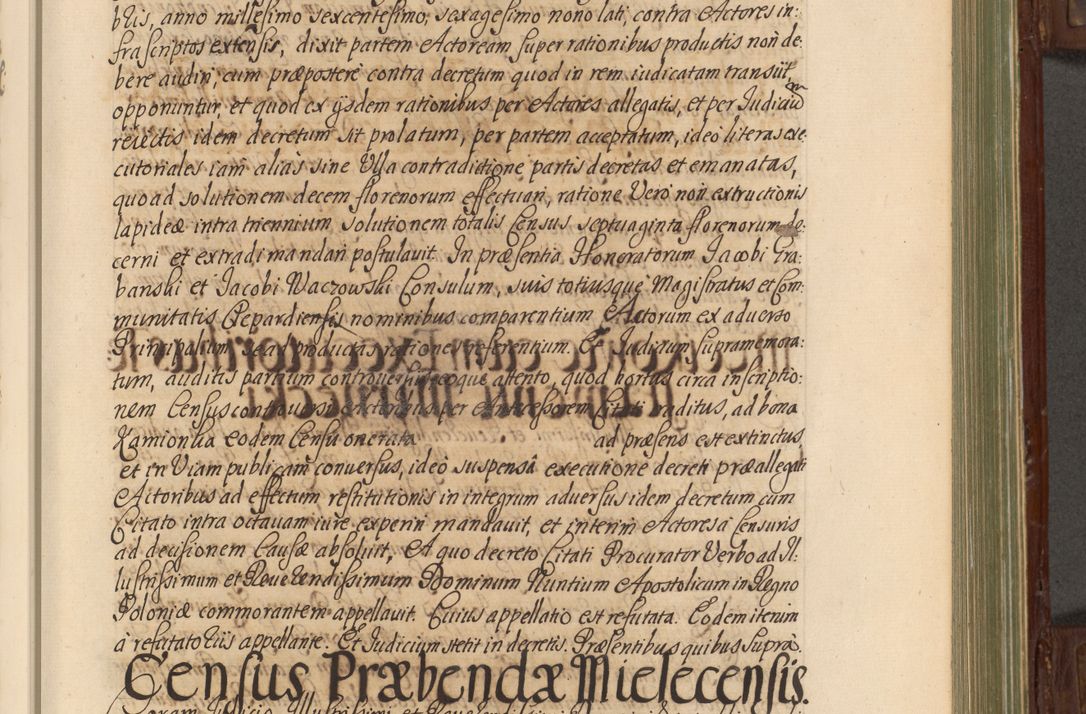 bris, anno millesimo sexcentesimo, sexagesimo nono lati, contra Actores in:
frascriptos extensis, dixit partem Actoream super rationibus productis non de:
bere audiri, cum præpostere contra decretum quod in rem iudicatam transiit,
opponuntur, et quod ex ijsdem rationibus per Actores allegatis, et per Judicium
reiectis idem decretum sit prolatum, per partem acceptatum, ideo literas exe:
cutoriales iam alias sine Ulla contradictione partis decretas et emanatas,
quoad solutionem decem florenorum effectuari, ratione Vero non extructionis
lapideæ intra triennium solutionem totalis Census septuaginta florenorum de:
cerni et extradi mandari postulavit. In præsentia Honoratorum Jacobi Gra:
banski et Jacobi Waczowski Consulum, suis totiusque Magistratus et Com:
munitatis Clepardiensis nominibus comparentium Actorum ex adverso
Principalium secus productas rationes referentium. Et Judicium supramemora:
tum, auditis partium controversiis eoque attento, quod hortus circa inscriptio:
nem Census controversi Actoribus per Antecessorem Citati traditus, ad bona
Kamionka eodem Censu onerata ad præsens est extinctus,
et in Viam publicam conversus, ideo suspensa executione decreti præallegati
Actoribus ad effectum restitutionis in integrum adversus idem decretum cum
Citato intra octavam iure experiri mandavit, et interim Actores a Censuris
ad decisionem Causæ absolvit, A quo decreto Citati Procurator Verbo ad Il:
lustrissimum et Reverendissimum Dominum Nuntium Apostolicum in Regno
Poloniæ commorantem appellavit. Cuius appellatio est refutata. Eodem iterum
à refutatoriis appellante. Et Judicium stetit in decretis. Præsentibus quibus supra.
Census Præbendæ Mielecensis.
Coram Judicio Illustrissimi et